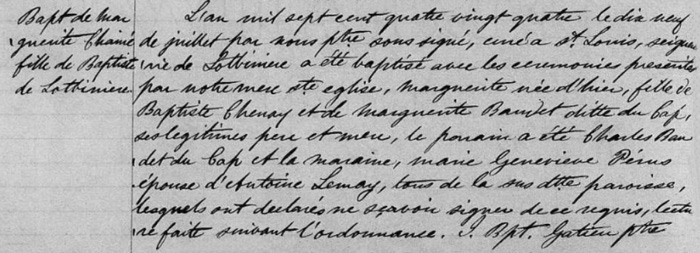 Bapt de mar
guerite Chainé
fille de Baptiste
de Lotbiniere.
L'an mil sept cent quatre vingt quatre le dix neuf
de juillet par nous ptre sous signé, curé a St. Louis, seigneu
rie de Lotbiniere a été baptisé avec les ceremonies presentes
par notre mere ste eglise, marguerite née d'hier, fille de
Baptiste Chenay et de marguerite Baudet ditte du Cap,
ses legitimes pere et mere, le parain a été Charles Bau
det du Cap et la maraine, marie Genevieve Pérus
épouse d'Antoine Lemay, tous de la sus dtte paroisse,
lesquels ont declarés ne sçavoir signer de ce requis, lectu
re faite suivant l'ordonnance. J. Bpt. Gatien ptre